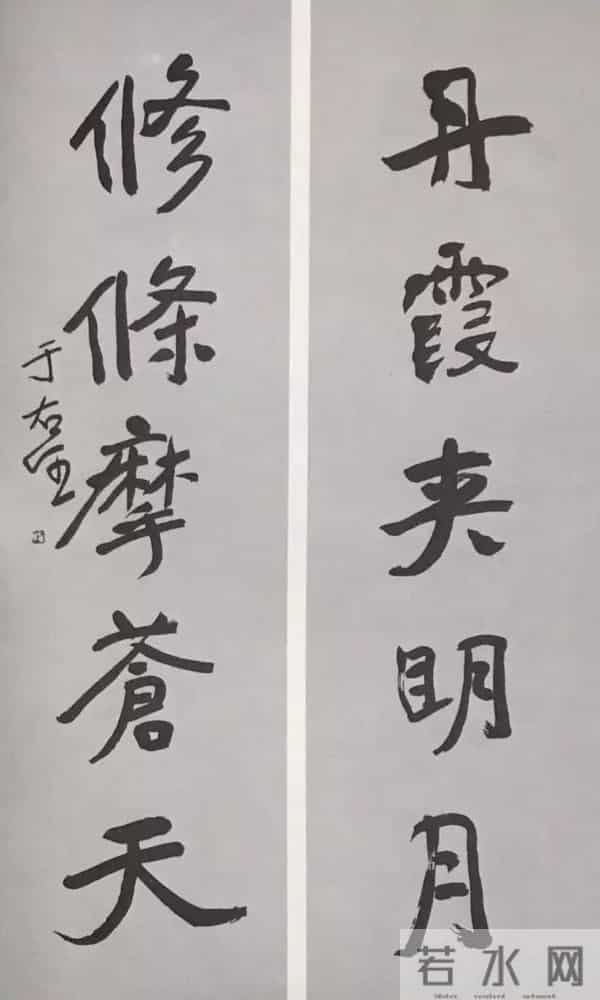 丹霞夹明月
修條摩蒼天
于右任
若水网